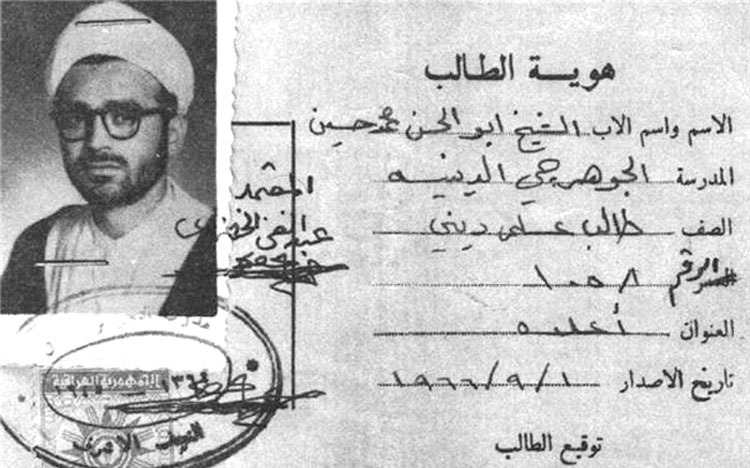 هوية الطالب
الاسم واسم الاب الشيخ ابو الحسن محمد حسين
المدرسة الجوهرجي الدينيه
الصف طالب علم ديني
الرقم ١٠٥٨
العنوان أعلاه
تاريخ الاصدار ١٩٦٦/٩/١
توقيع الطالب
المعتمد
عبد
الجمهورية العراقية
النجف الاشرف